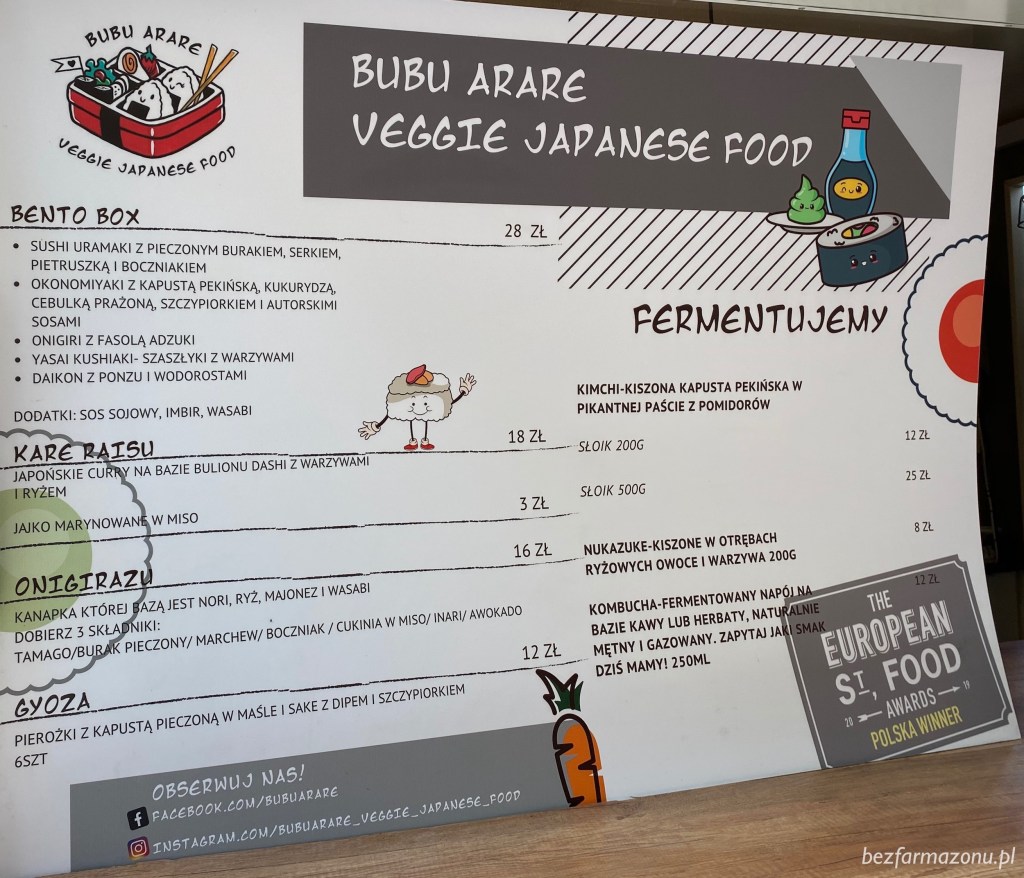 BUBU ARARE
VEGGIE JAPANESE FOOD
BUBU ARARE
VEGGIE JAPANESE FOOD
BENTO BOX
28 ZŁ
• SUSHI URAMAKI Z PIECZONYM BURAKIEM, SERKIEM,
PIETRUSZKĄ I BOCZNIAKIEM
• OKONOMIYAKI Z KAPUSTĄ PEKIŃSKĄ, KUKURYDZĄ,
CEBULKĄ PRAŻONĄ, SZCZYPIORKIEM I AUTORSKIMI
SOSAMI
• ONIGIRI Z FASOLĄ ADZUKI
• YASAI KUSHIAKI- SZASZŁYKI Z WARZYWAMI
• DAIKON Z PONZU I WODOROSTAMI
DODATKI: SOS SOJOWY, IMBIR, WASABI
KARE RAISU
18 ZŁ
JAPOŃSKIE CURRY NA BAZIE BULIONU DASHI Z WARZYWAMI
I RYŻEM
3 ZŁ
JAJKO MARYNOWANE W MISO
ONIGIRAZU
16 ZŁ
KANAPKA KTÓREJ BAZĄ JEST NORI, RYŻ, MAJONEZ I WASABI
DOBIERZ 3 SKŁADNIKI:
TAMAGO/BURAK PIECZONY/ MARCHEW/ BOCZNIAK / CUKINIA W MISO/ INARI/ AWOKADO
GYOZA
12 ZŁ
PIEROŻKI Z KAPUSTĄ PIECZONĄ W MAŚLE I SAKE Z DIPEM I SZCZYPIORKIEM
6SZT
OBSERWUJ NAS!
FACEBOOK.COM/BUBUARARE
INSTAGRAM.COM/BUBUARARE_VEGGIE_JAPANESE_FOOD
FERMENTUJEMY
KIMCHI-KISZONA KAPUSTA PEKIŃSKA W
PIKANTNEJ PAŚCIE Z POMIDORÓW
SŁOIK 200G 12 ZŁ
SŁOIK 500G 25 ZŁ
NUKAZUKE-KISZONE W OTRĘBACH
RYŻOWYCH OWOCE I WARZYWA 200G
8 ZŁ
KOMBUCHA-FERMENTOWANY NAPÓJ NA
BAZIE KAWY LUB HERBATY, NATURALNIE
MĘTNY I GAZOWANY. ZAPYTAJ JAKI SMAK
DZIŚ MAMY! 250ML
12 ZŁ
THE
EUROPEAN
ST, FOOD
20 AWARDS 19
POLSKA WINNER
bezfarmazonu.pl